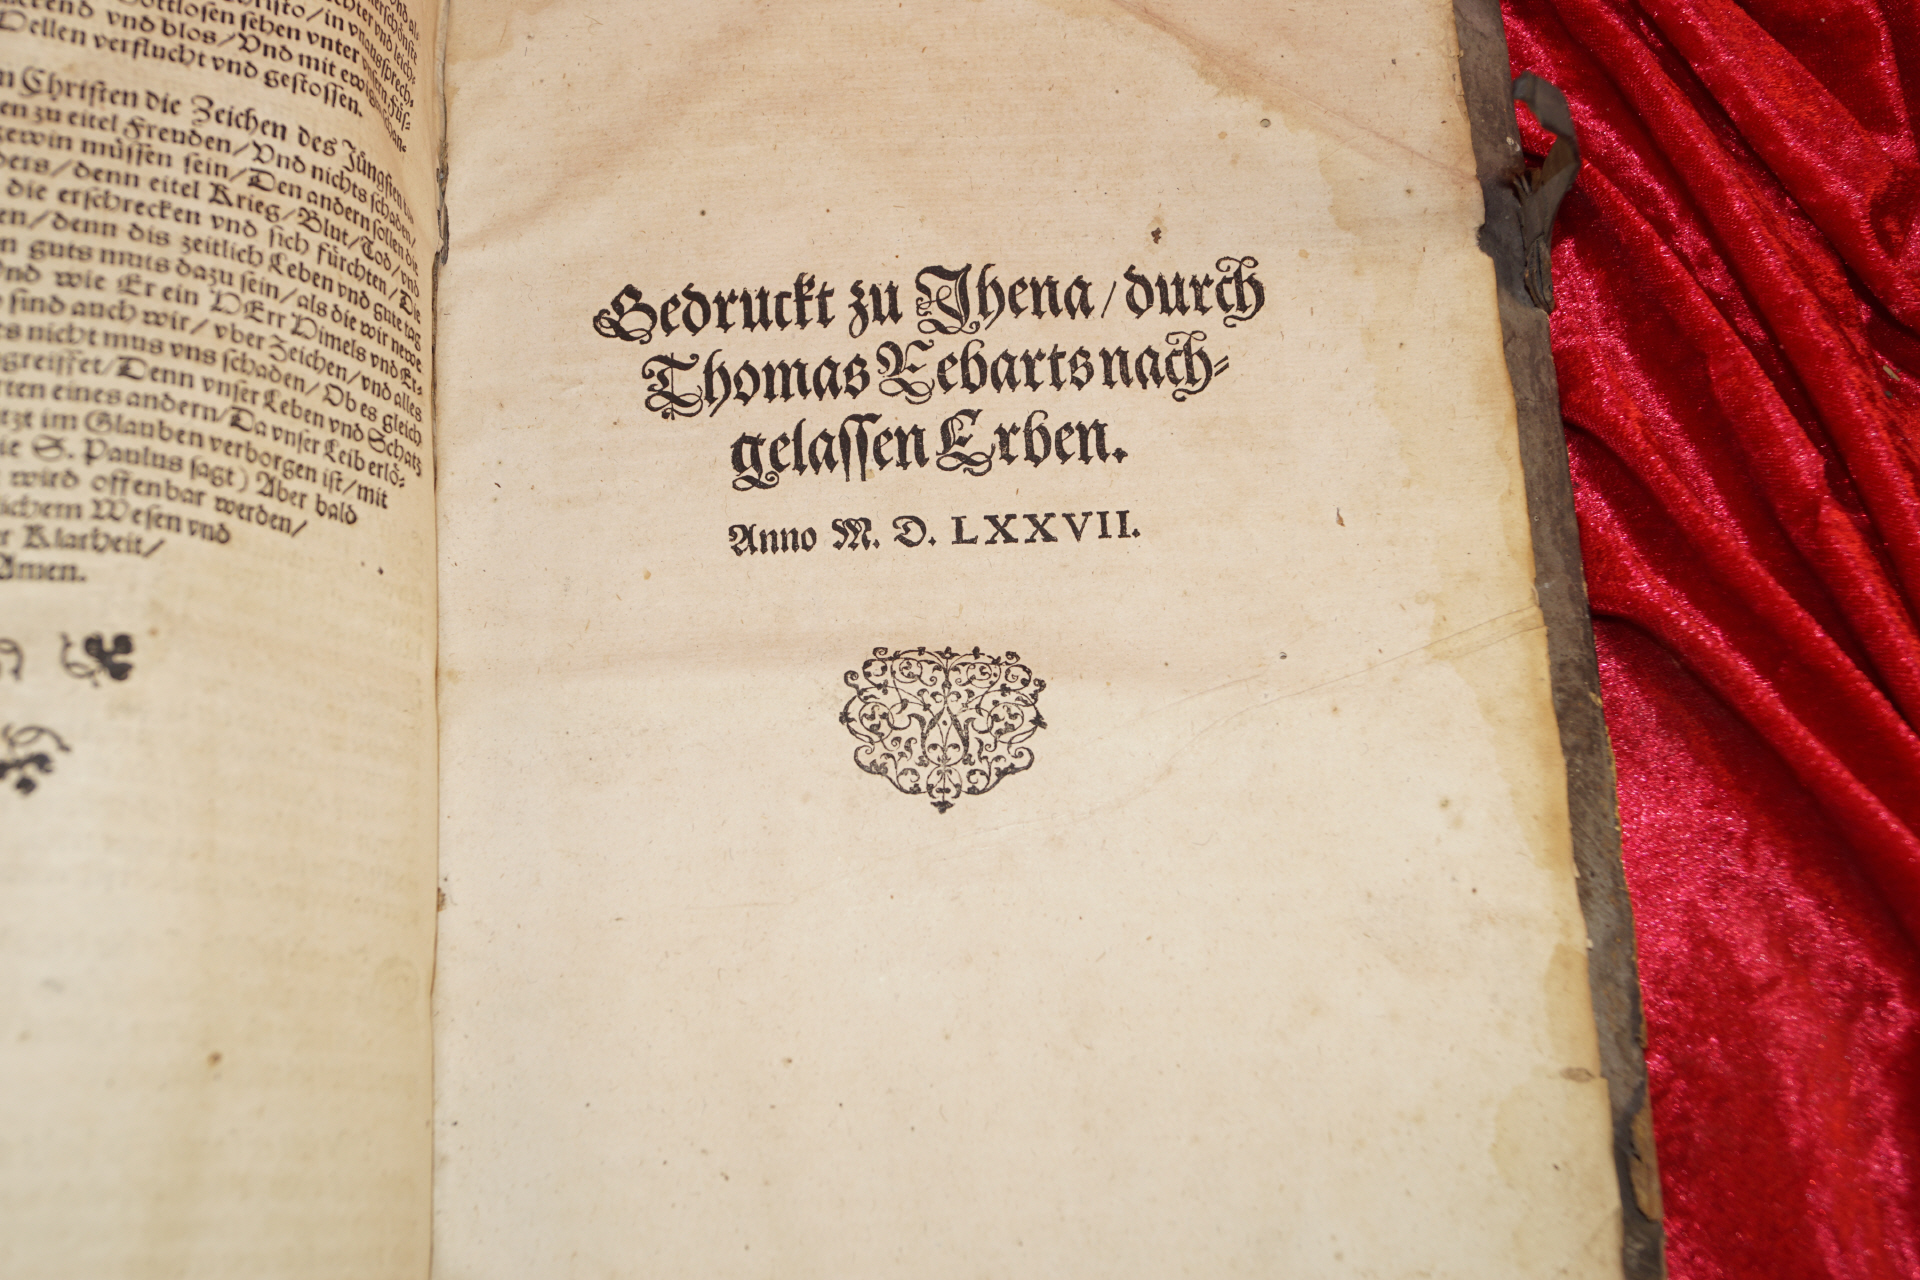 Gottlosen sehen vnter vnsern Füs-
vnd blos/Vnd mit ewigem
Hellen verflucht vnd gestossen.
Christen die Zeichen des Jüngsten
zu eitel Freuden/Vnd nichts schaden/
gewin müssen sein/Den andern sollen die
denn eitel Krieg/Blut/Tod/vnd
die erschrecken vnd sich fürchten/Die
denn dis zeitlich Leben vnd gute tag
guts muts dazu sein/als die wir newe
wie Er ein HErr Himels vnd Er-
sind auch wir/vber Zeichen/vnd alles
nicht mus vns schaden/Ob es gleich
greiffet/Denn vnser Leben vnd Schatz
eines andern/Da vnser Leib erlö-
im Glauben verborgen ist/mit
S. Paulus sagt) Aber bald
wird offenbar werden/
Wesen vnd
Klarheit/
Amen.
Gedruckt zu Jhena/durch
Thomas Rebarts nach-
gelassen Erben.
Anno M. D. LXXVII.